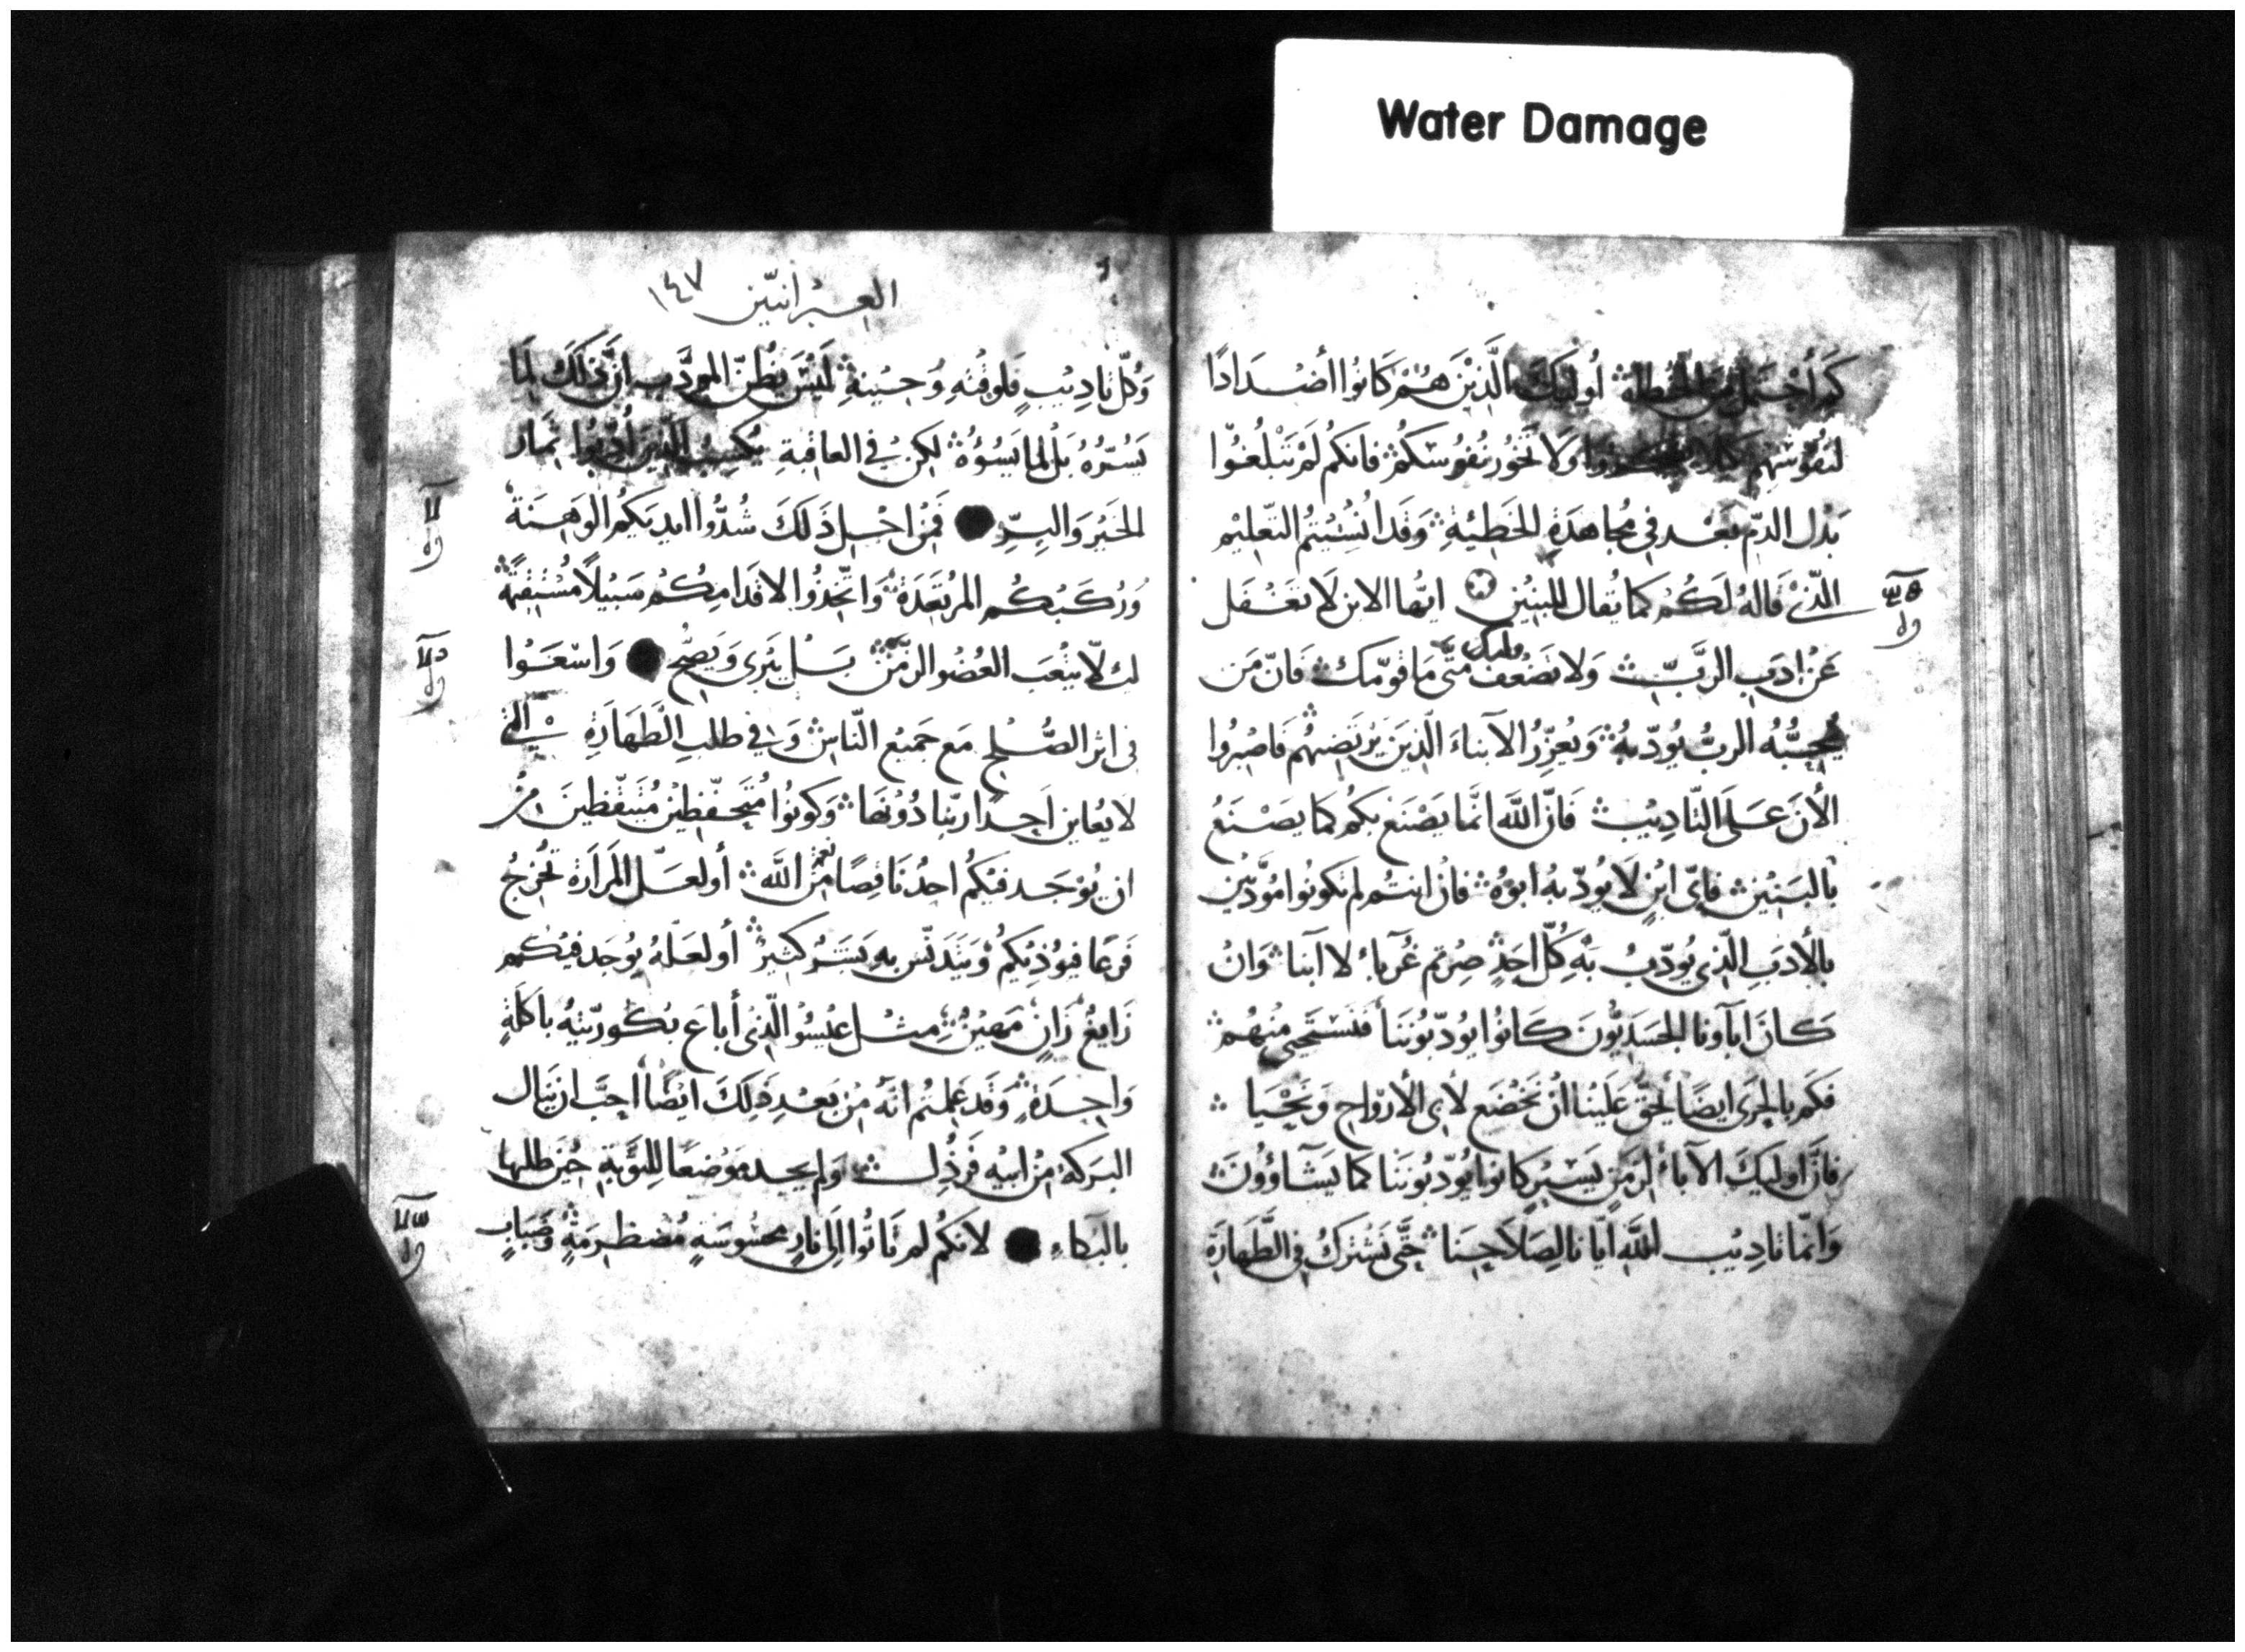 Water Damage
كم أحتمل من الخطاة أوليك الذين هم كانوا أضدادا
لنفوسهم ولا تخور نفوسكم فانكم لم تبلغوا
بذل الدم بعد في مجاهدة الخطيئة وقد انسيتم التعليم
الذي قاله لكم كما يقال للبنين ايها الابن لا تغفل
عن ادب الرب ولا تضعف متى ما قومك فان من
يحبه الرب يودبه ويعزر الابناء الذين يرتضيهم فاصبروا
الأن على التاديب فان الله انما يصنع بكم كما يصنع
بالبنين فاي ابن لا يودبه ابوه فان انتم لم تكونوا مودبين
بالأدب الذي يودب به كل احد صرتم غرباء لا ابنا وان
كان اباونا الجسديون كانوا يودبوننا فنستحيي منهم
فكم بالحري ايضا يحق علينا ان نخضع لأبي الأرواح ونحيا
فان اوليك الآباء لزمن يسير كانوا يودبوننا كما يشآؤون
وانما تاديب الله ايانا لصلاحنا حتى نشترك في الطهارة
العبرانيين ١٤٧
وكل تاديب فلوقته وحينه ليس يظن المودب ان ذلك لما
يسره بل لما يسوءه لكن في العاقبة يكسب الذين أدبوا ثمار
الخير والبر فمن اجل ذلك شدوا ايديكم الوهنة
وركبكم المرتعدة واتخذوا لاقدامكم سبيلا مستقيمة
لئلا يتعب العضو الزمن بل يبرى ويصح واسعوا
في اثر الصلح مع جميع الناس وفي طلب الطهارة التي
لا يعاين احد ربنا دونها وكونوا متحفظين متيقظين من
ان يوجد فيكم احد ناقصا من نعم الله أو لعل المرارة تخرج
فرعا فيوذيكم ويتدنس به بشر كثير أو لعله يوجد فيكم
زايغ زان مهين مثل عيسو الذي أباع بكوريته باكلة
واحدة وقد علمتم انه من بعد ذلك ايضا احب ان ينال
البركة من ابيه فرذل ولم يجد موضعا للتوبة حين طلبها
بالبكاء لانكم لم تاتوا الى نار محسوسة مضطرمة وضباب